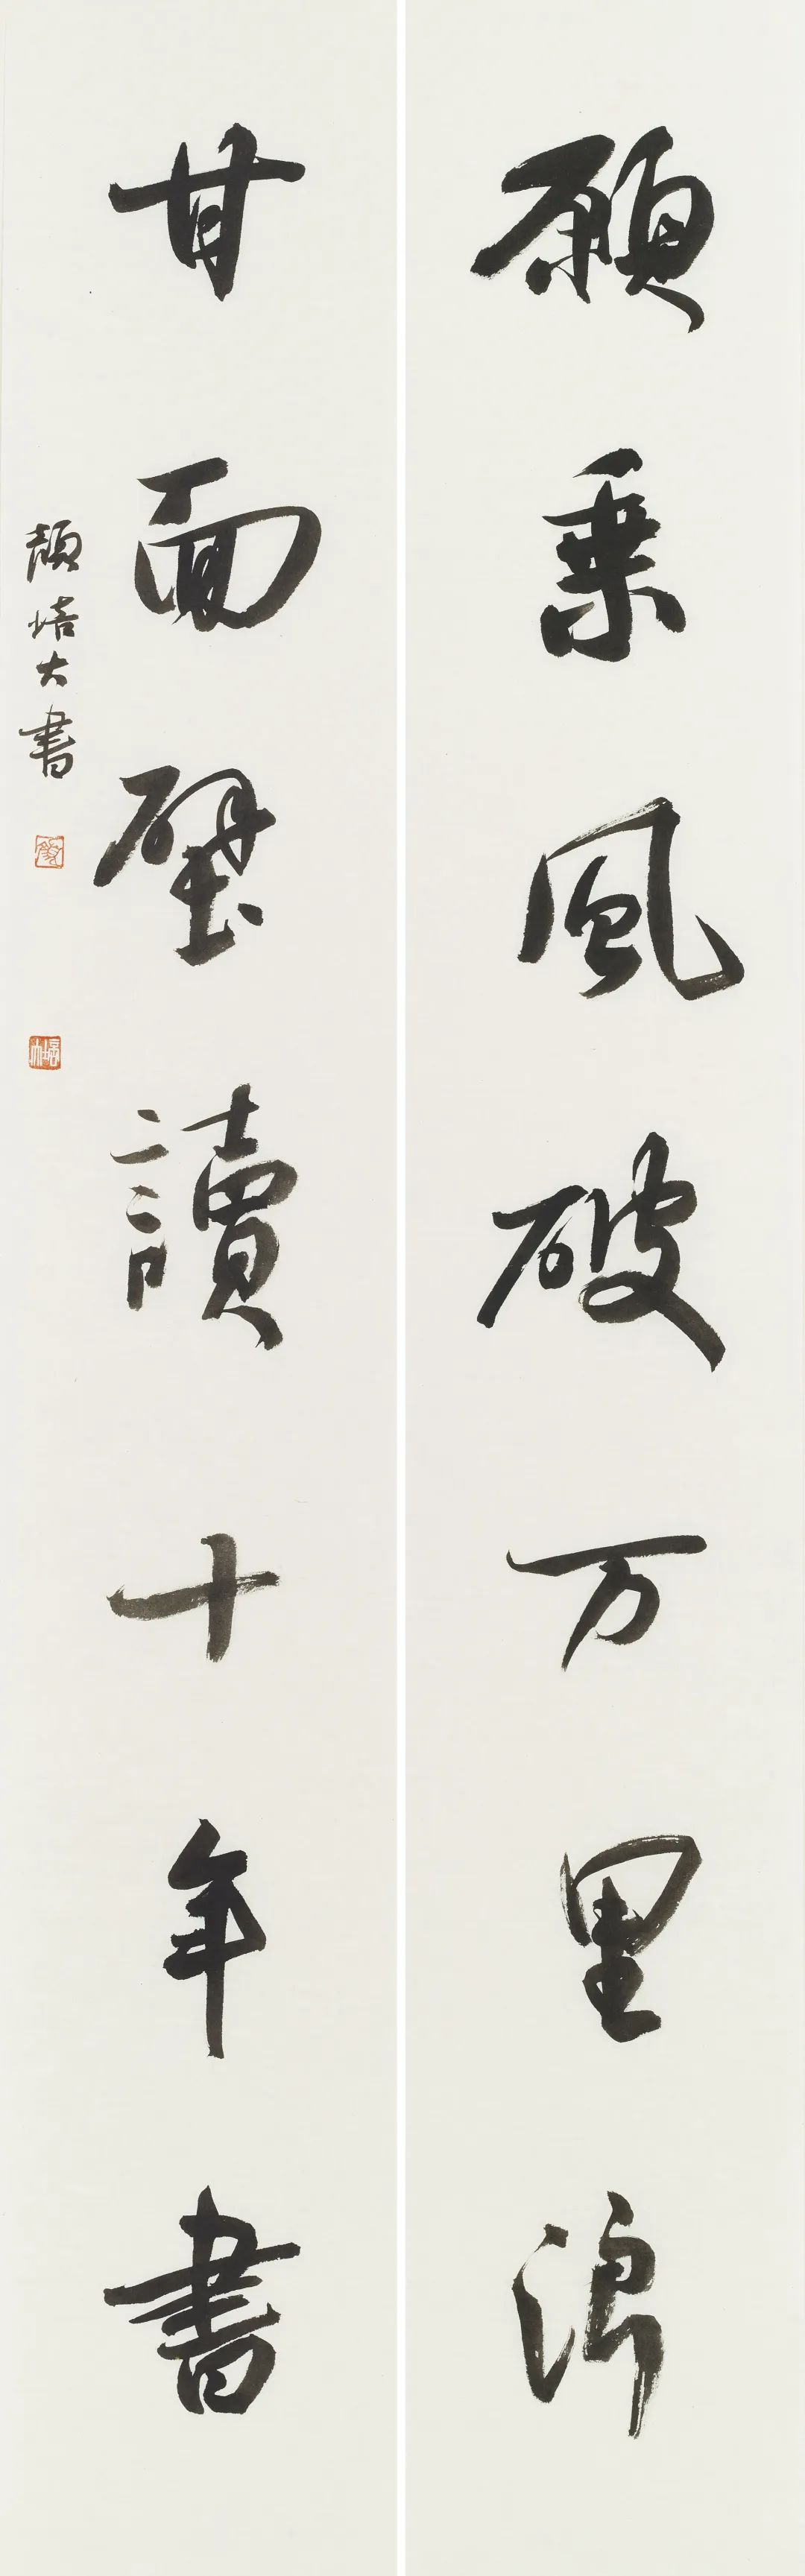 願乘風破万里浪
甘面壁讀十年書
顏培大書